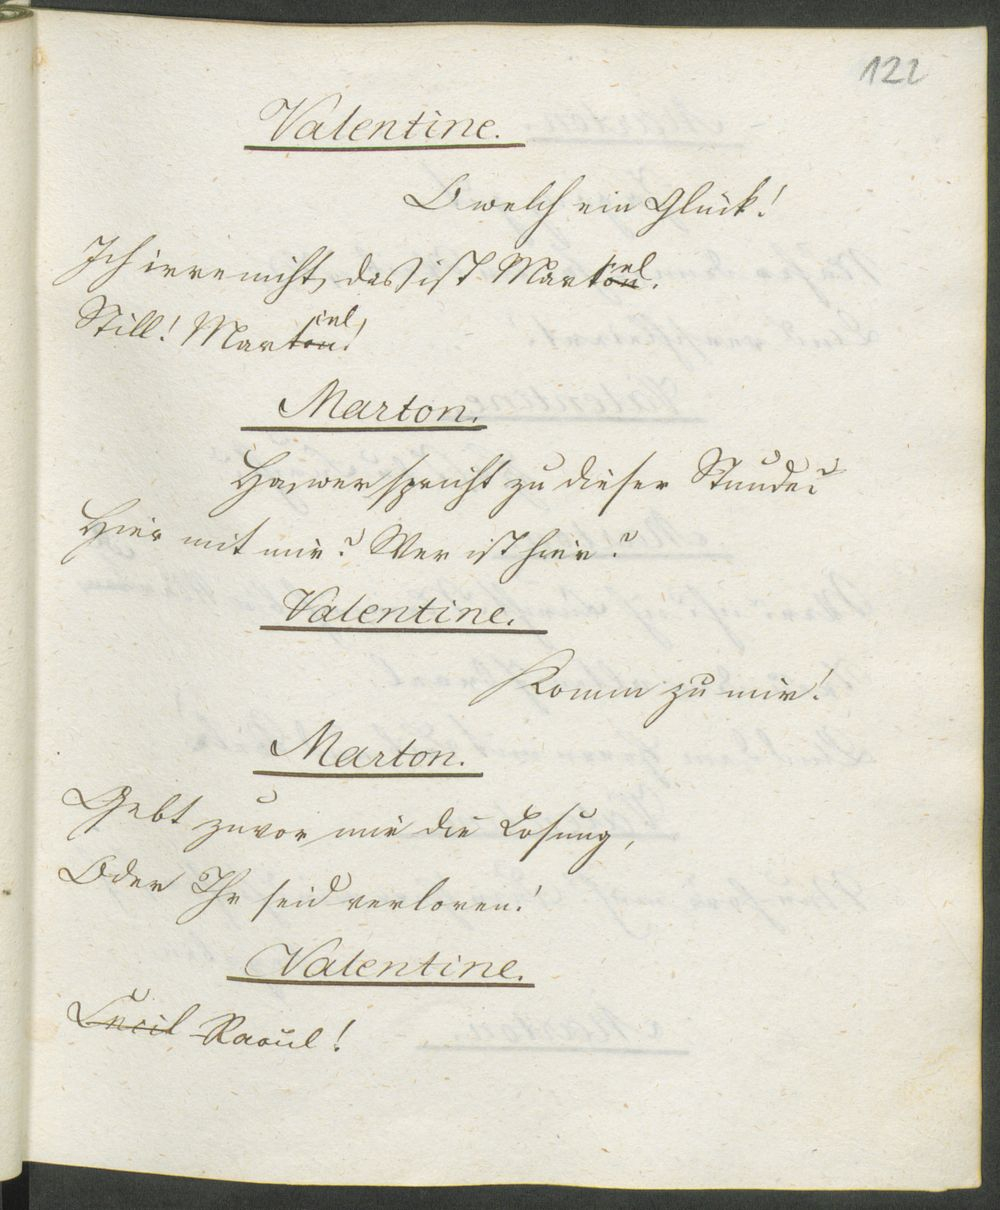 122
Valentine.
O welch ein Glück!
Ich irre nicht, das ist Marcel.
Still! Marcel!
Marton.
Ha, wer spricht zu dieser Stunde
Hier mit mir? Wer ist hier?
Valentine.
Komm zu mir!
Marton.
Gebt zuvor mir die Losung,
Oder Ihr seid verloren!
Valentine.
Raoul!